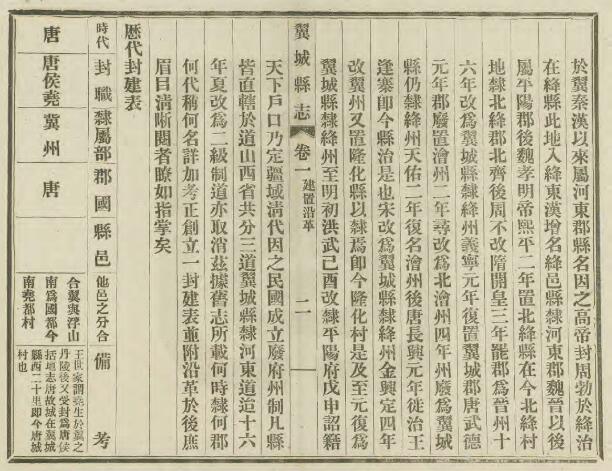 於翼秦漢以來屬河東郡縣名因之高帝封周勃於絳治
在絳縣此地入絳東漢增名絳邑縣隸河東郡魏晉以後
屬平陽郡後魏孝明帝熙平二年置北絳縣在今北絳村
地隸北絳郡北齊後周不改隋開皇三年罷郡爲晉州十
六年改爲翼城縣隸絳州義寧元年復置翼城郡唐武德
元年郡廢置澮州二年尋改爲北澮州四年州廢爲翼城
縣仍隸絳州天佑二年復名澮州後唐長興元年徙治王
逢寨即今縣治是也宋改爲翼城縣隸絳州金興定四年
改翼州又置隆化縣以隸焉即今隆化村是及至元復爲
翼城縣隸絳州至明初洪武己酉改隸平陽府戊申詔籍
翼城縣志
卷一
建置沿革
二
天下戶口乃定疆域清代因之民國成立廢府州制凡縣
皆直轄於道山西省共分三道翼城縣隸河東道迨十六
年夏改爲二級制道亦取消茲據舊志所載何時隸何郡
何代稱何名詳加考正創立一封建表並附沿革於後庶
眉目清晰閱者瞭如指掌矣
歷代封建表
時代 封職 隸屬部 郡國縣邑 他邑之分合 備考
唐 唐侯堯 冀州 唐
合翼與浮山
南爲國都今
南堯都村
王世家謂堯生於翼之
丹陵後又受封爲唐侯
括地志唐故城在翼城
縣西二十里即今唐城
村也